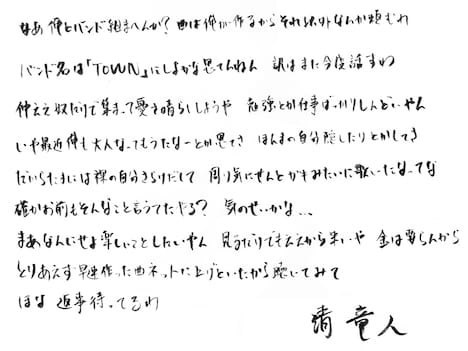 なあ 俺とバンド組まへんか? 曲は俺が作るからそれ以外なんか頼むわ
バンド名は「TOWN」にしよかな思てんねん 訳はまた今度話すわ
仲ええ奴だけで集まって憂さ晴らししようや 勉強とか仕事ばっかりしんどいやん
いや最近俺も大人なってもうたなーとか思てさ ほんまの自分隠したりとかしてさ
だからたまには裸の自分さらけだして 周り気にせんとガキみたいに歌いたいなってな
確かお前もそんなこと言うてたやろ? 気のせいかな...
まあなんにせよ楽しいことしたいやん 見るだけでもええから来いや 金は要らんから
とりあえず早速作った曲ネットに上げといたから聴いてみて
ほな 返事待ってるわ
清 竜人